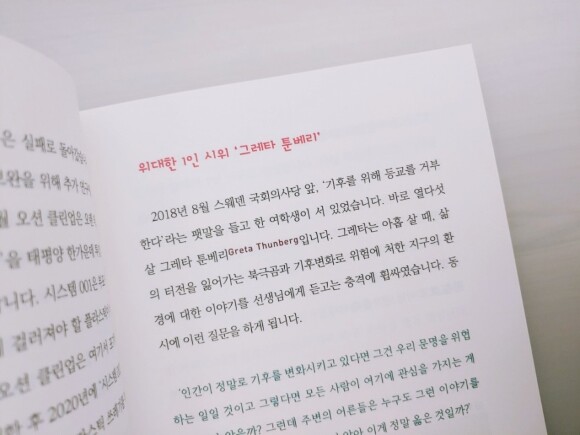 은 실패로 돌아갔
보완을 위해 추가
월 오션 클린업은
을 태평양 한가운데
니다. 시스템 001은
에 걸러져야 할 플라스
오션 클린업은 여기서
한 후 2020년에 '시스
위대한 1인 시위 '그레타 툰베리'
2018년 8월 스웨덴 국회의사당 앞, '기후를 위해 등교를 거부
한다'라는 팻말을 들고 한 여학생이 서 있었습니다. 바로 열다섯
살 그레타 툰베리Greta Thunberg입니다. 그레타는 아홉 살 때, 삶
의 터전을 잃어가는 북극곰과 기후변화로 위험에 처한 지구의 환
경에 대한 이야기를 선생님에게 듣고는 충격에 휩싸였습니다. 동
시에 이런 질문을 하게 됩니다.
'인간이 정말로 기후를 변화시키고 있다면 그건 우리 문명을 위협
하는 일일 것이고 그렇다면 모든 사람이 여기에 관심을 가지는 게
않을까? 그런데 주변의 어른들은 누구도 그런 이야기를
이게 정말 옳은 것일까?'